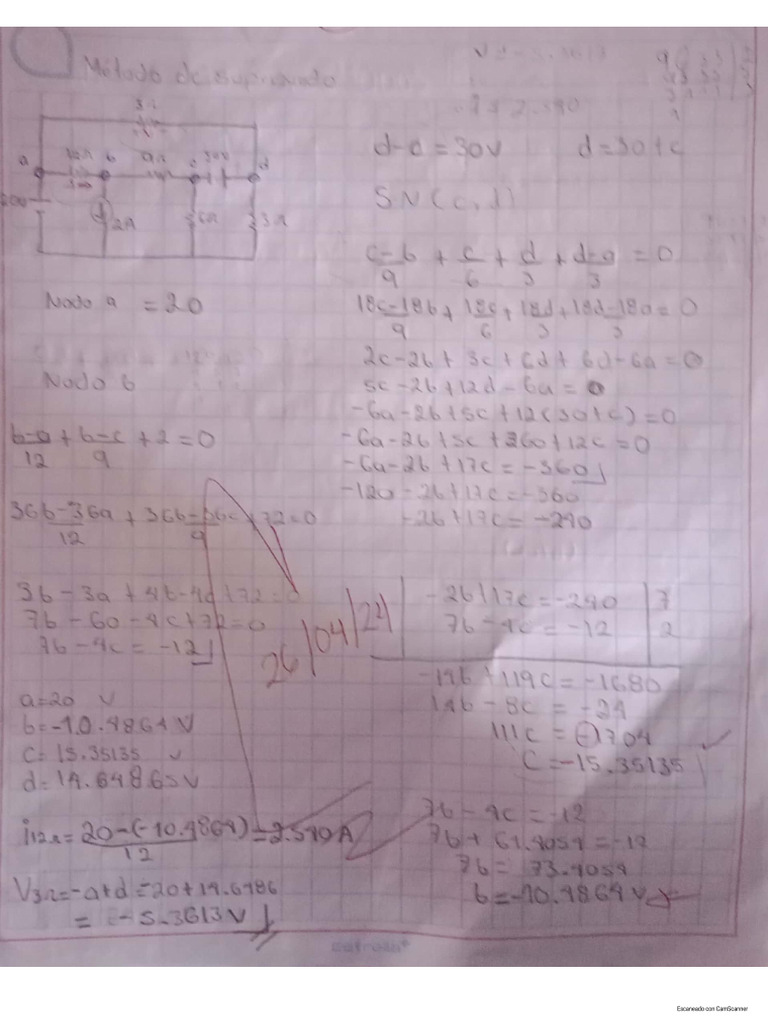 Método de supernodo
3Ω
a 12Ω b 9Ω c 30V d
20V
2A
6Ω
3Ω
Nodo a = 20
Nodo b
b-a/12 + b-c/9 + 2 = 0
36b-36a/12 + 36b-36c/9 + 72 = 0
3b - 3a + 4b - 4c + 72 = 0
7b - 60 - 4c + 72 = 0
7b - 4c = -12
a = 20 V
b = -10.4864 V
c = 15.35135 V
d = 14.64865 V
i12Ω = 20-(-10.4864)/12 = 2.540 A
V3Ω = -a+d = 20+14.6486
= -5.3613 V
d-c = 30V d = 30+c
SN(c,d)
c-b/9 + c/6 + d/3 + d-a/3 = 0
18c-18b/9 + 18c/6 + 18d/3 + 18d-18a/3 = 0
2c-2b + 3c + 6d + 6d - 6a = 0
5c - 2b + 12d - 6a = 0
-6a - 2b + 5c + 12(30+c) = 0
-6a - 2b + 5c + 360 + 12c = 0
-6a - 2b + 17c = -360
-120 - 2b + 17c = -360
-2b + 17c = -240
-2b + 17c = -240 | 7
7b - 4c = -12 | 2
-14b + 119c = -1680
14b - 8c = -24
111c = -1704
c = -15.35135
7b - 4c = -12
7b + 61.4054 = -12
7b = 73.4054
b = -10.4864 V
26/04/24
Escaneado con CamScanner